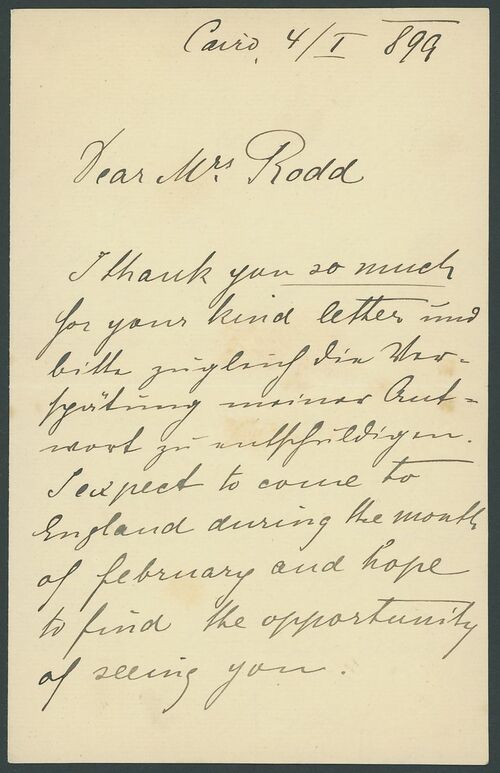 Cairo, 4/I 899
Dear Mrs. Rodd
I thank you so much
for your kind letter und
bitte zugleich die Ver=
spätung meiner Ant=
wort zu entschuldigen.
I expect to come to
England during the month
of february and hope
to find the opportunity
of seeing you.